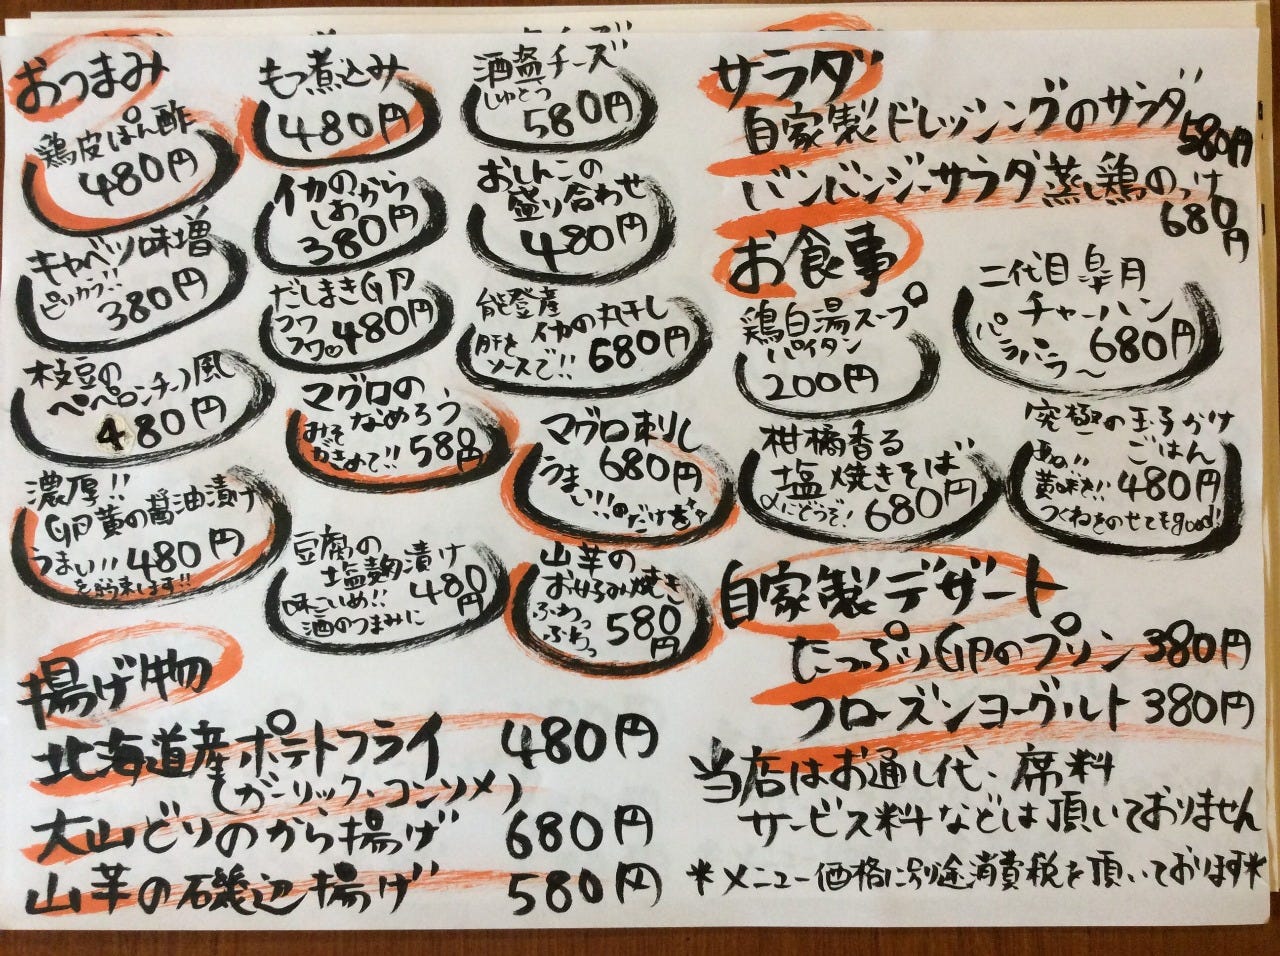 おつまみ
鶏皮ぽん酢
480円
キャベツ味増
ピリカラ!!
380円
枝豆の
ペペロンチーノ風
480円
濃厚!!
卵黄の醤油漬け
うまい!!480円
もつ煮込み
480円
イカのしおから
380円
だしまき卵
フワフワ♡480円
マグロの
なめろう
みそがきめて!!580円
豆腐の
塩麹漬け
480円
味こいめ!!
酒のつまみに
酒盗チーズ
しゅとう
580円
おしんこの
盛り合わせ
480円
能登産
イカの丸干し
肝をソースで!!680円
マグロ刺し
680円
うまい!!!のだけを
山芋の
おやろみ焼き
ふわっふわっ
580円
揚げ物
北海道産ポテトフライ 480円
(ガーリック、コンソメ)
大山どりのから揚げ 680円
山芋の磯辺揚げ 580円
サラダ
自家製ドレッシングのサラダ 580円
バンバンジーサラダ蒸し鶏のっけ
680円
お食事
鶏白湯スープ
パイタン
200円
二代目皐月
チャーハン
パラパラ〜 680円
柑橘香る
塩焼きそば
〆にどうぞ!680円
究極の玉子かけ
ごはん
黄味を!!480円
つくねをのせてもgood!
自家製デザート
たっぷり卵のプリン 380円
フローズンヨーグルト 380円
当店はお通し代、席料
サービス料などは頂いておりません
*メニュー価格に別途消費税を頂いております*